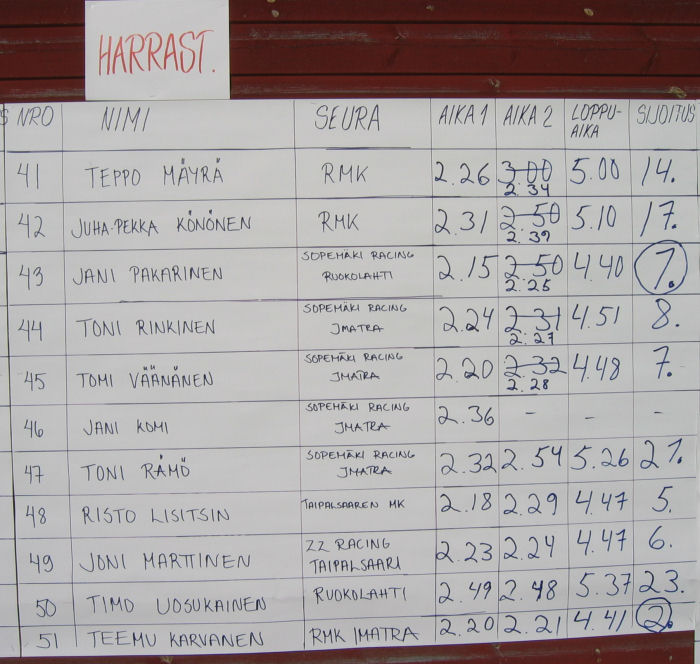 HARRAST.
S NRO NIMI SEURA AIKA 1 AIKA 2 LOPPU-AIKA SIJOITUS
41 TEPPO MÄYRÄ RMK 2.26 3.00 2.34 5.00 14.
42 JUHA-PEKKA KÖNÖNEN RMK 2.31 2.50 2.39 5.10 17.
43 JANI PAKARINEN SOPEMÄKI RACING RUOKOLAHTI 2.15 2.50 2.25 4.40 1.
44 TONI RINKINEN SOPEMÄKI RACING IMATRA 2.24 2.31 2.27 4.51 8.
45 TOMI VÄÄNÄNEN SOPEMÄKI RACING IMATRA 2.20 2.32 2.28 4.48 7.
46 JANI KOMI SOPEMÄKI RACING IMATRA 2.36 - - -
47 TONI RÄMÖ SOPEMÄKI RACING IMATRA 2.32 2.54 5.26 21.
48 RISTO LISITSIN TAIPALSAAREN MK 2.18 2.29 4.47 5.
49 JONI MARTTINEN ZZ RACING TAIPALSAARI 2.23 2.24 4.47 6.
50 TIMO UOSUKAINEN RUOKOLAHTI 2.49 2.48 5.37 23.
51 TEEMU KARVANEN RMK IMATRA 2.20 2.21 4.41 2.